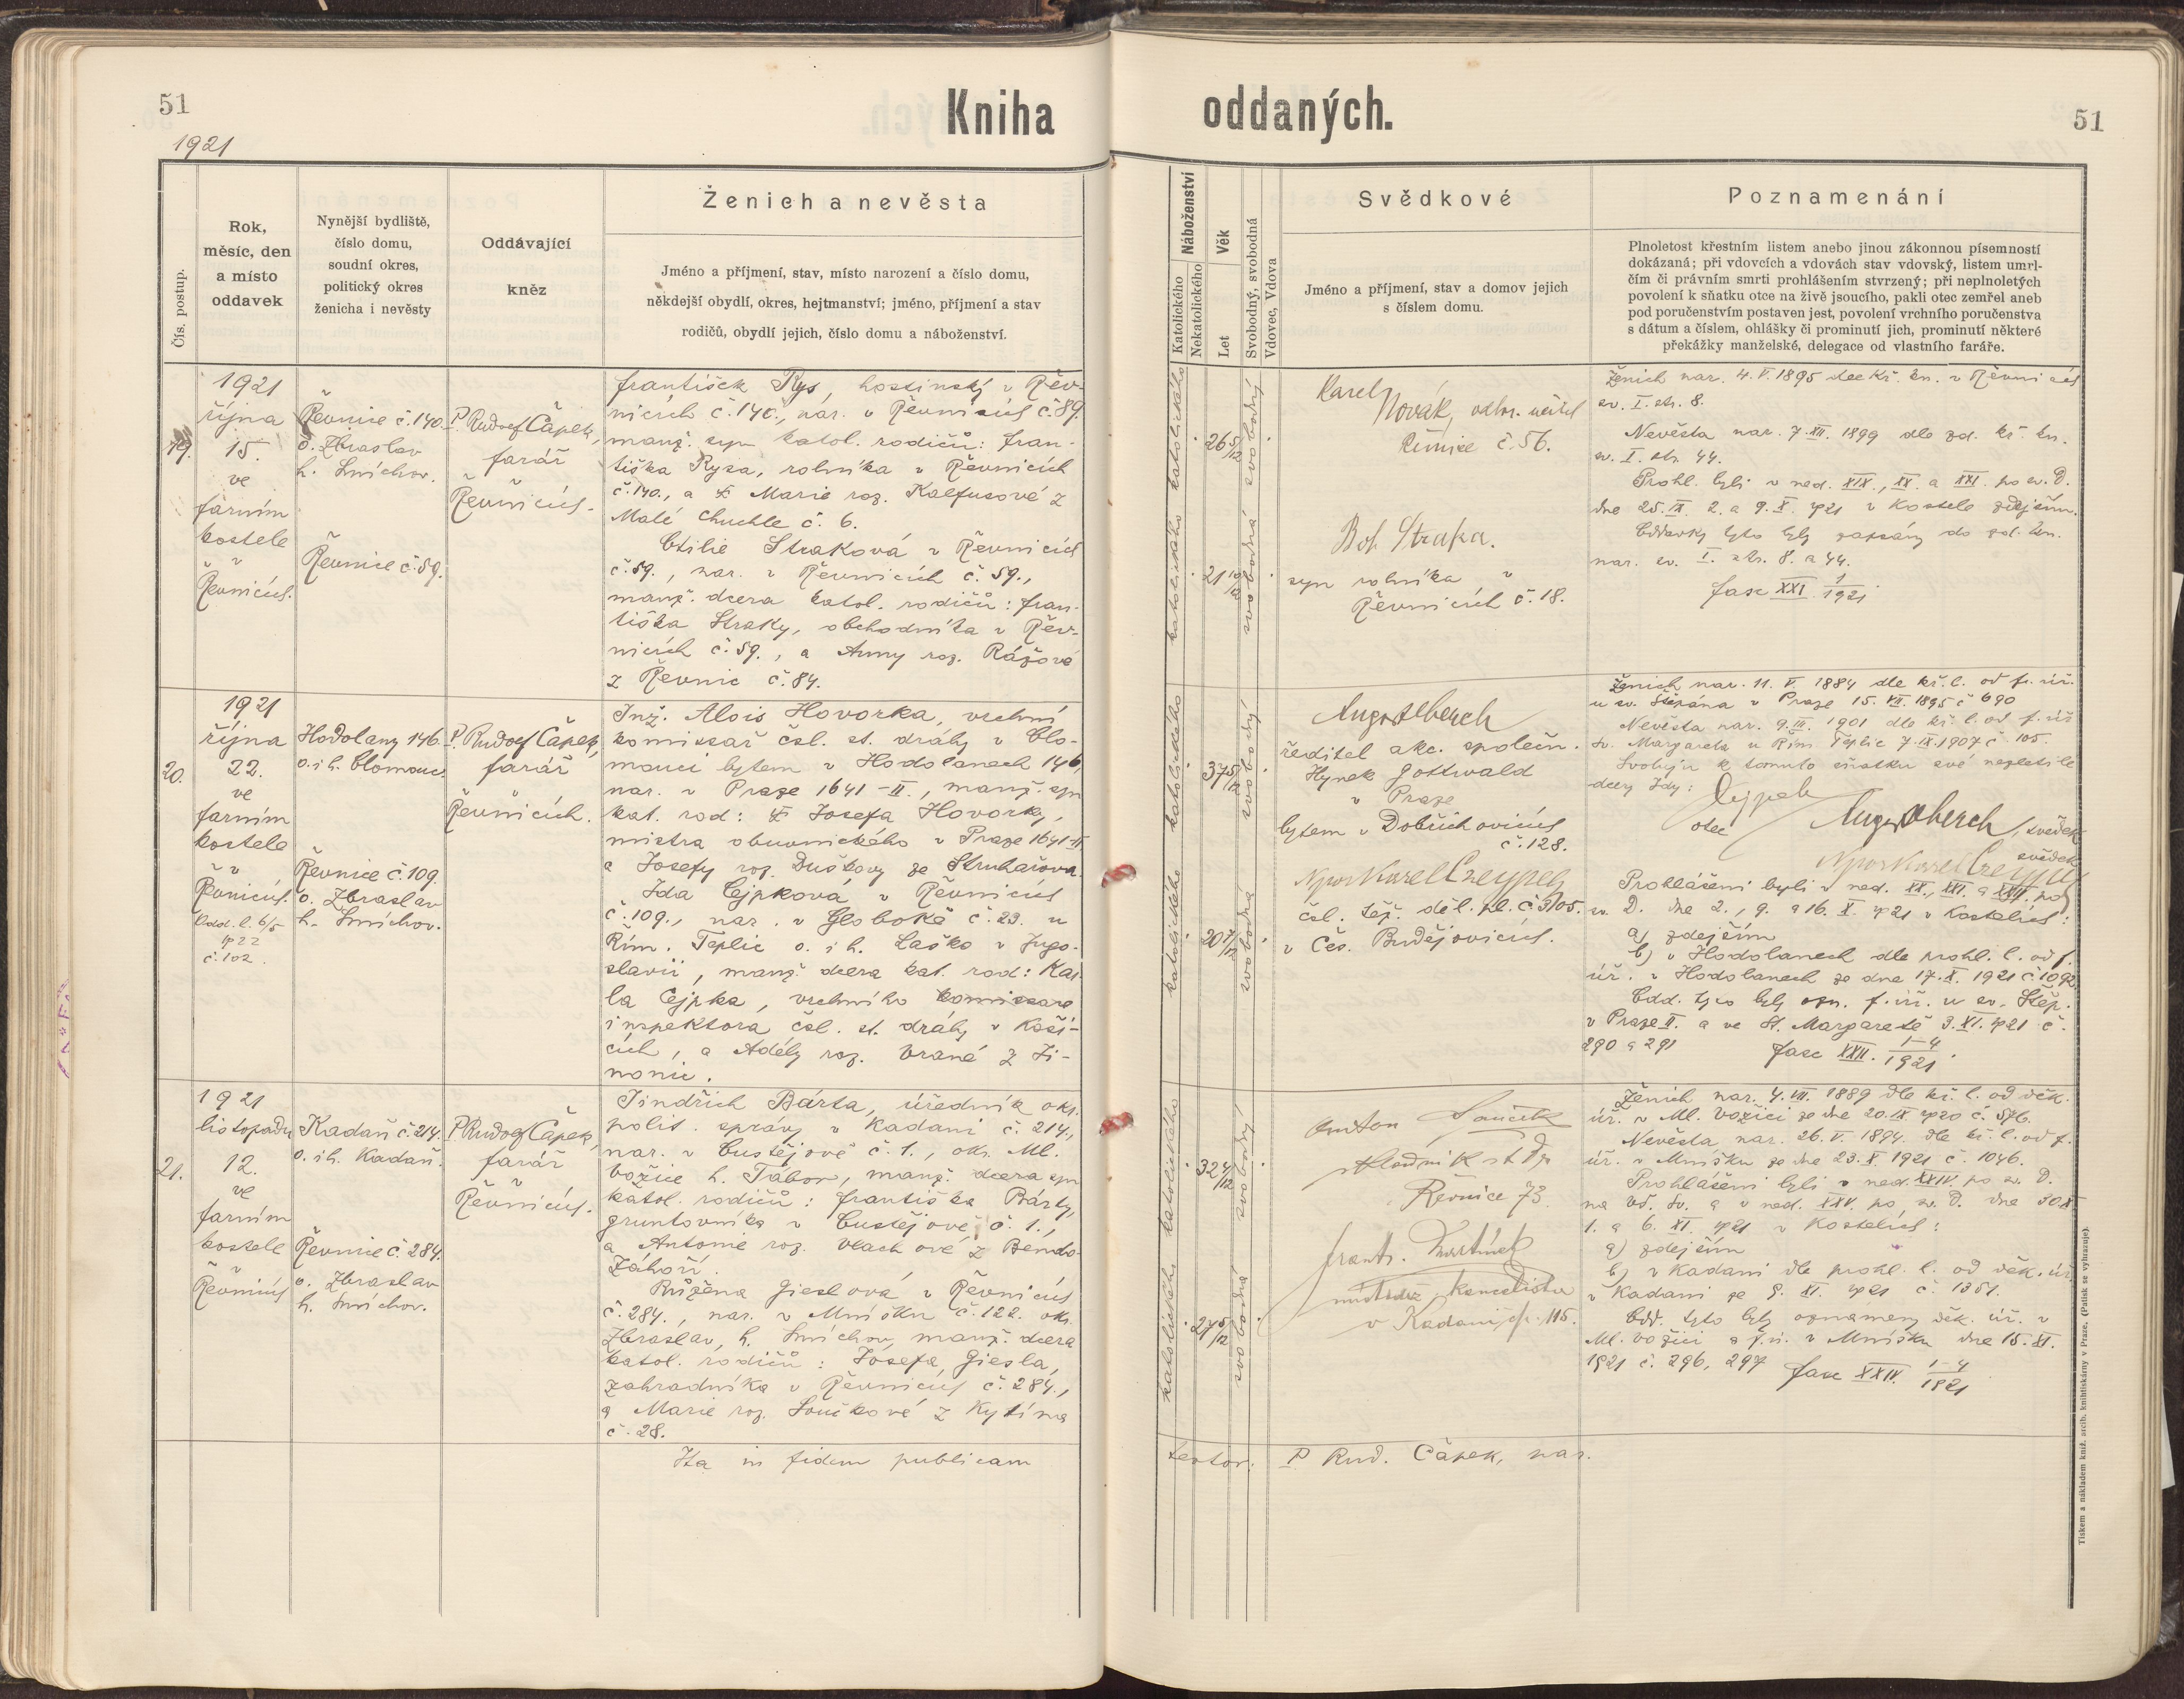 51
1921
Kniha
Čís. postup.
Rok,
měsíc, den
a místo
oddavek
Nynější bydliště,
číslo domu,
soudní okres,
politický okres
ženicha i nevěsty
Oddávající
kněz
Ženich a nevěsta
Jméno a příjmení, stav, místo narození a číslo domu,
někdejší obydlí, okres, hejtmanství; jméno, příjmení a stav
rodičů, obydlí jejich, číslo domu a náboženství.
19.
1921
října
15.
ve
farním
kostele
v
Řevnicích.
Řevnice č. 140.
o. Zbraslav
h. Smíchov.
Řevnice č. 59.
P. Rudolf Čápek,
farář
v
Řevnicích.
František Rys, hostinský v Řev-
nicích č. 140., nar. v Řevnicích č. 89.
manž. syn katol. rodičů: Fran-
tiška Rysa, rolníka v Řevnicích
č. 140., a Marie roz. Kalfusové z
Malé Chuchle č. 6.
Otilie Straková v Řevnicích
č. 59., nar. v Řevnicích č. 59.,
manž. dcera katol. rodičů: Fran-
tiška Straky, obchodníka v Řev-
nicích č. 59., a Anny roz. Rážové
z Řevnic č. 84.
20.
1921
října
22.
ve
farním
kostele
v
Řevnicích.
Odd. l. 6/5
1922
č. 102.
Hodolany 146.
o. i h. Olomouc.
Řevnice č. 109.
o. Zbraslav
h. Smíchov.
P. Rudolf Čápek,
farář
v
Řevnicích.
Inž. Alois Hovorka, vrchní
komissař čsl. st. dráhy v Olo-
mouci bytem v Hodolanech 146,
nar. v Praze 1641-II., manž. syn
kat. rod: Josefa Hovorky,
mistra obuvnického v Praze 1641-II
a Josefy roz. Duškovy ze Struhařova.
Ida Cejpková v Řevnicích
č. 109., nar. v Globoké č. 23. u
Řím. Teplic o. i h. Laško v Jugo-
slavii, manž. dcera kat. rod: Kar-
la Cejpka, vrchního komissaře
inspektora čsl. st. dráhy v Koši-
cích, a Adély roz. Vrané z Ji-
nonic.
21.
1921
listopadu
12.
ve
farním
kostele
v
Řevnicích
Kadaň č. 214.
o. i h. Kadaň.
Řevnice č. 284.
o. Zbraslav
h. Smíchov.
P. Rudolf Čápek,
farář
v
Řevnicích.
Jindřich Bárta, úředník okr.
polit. správy v Kadani č. 214.,
nar. v č. 1., okr. Ml.
Vožice h. Tábor, manž. dcera syn
katol. rodičů: Františka Bárty,
gruntovníka v č. 1.,
a Antonie roz. Vlachové z
Záhoří.
Růžena Gieslová v Řevnicích
č. 284., nar. v Mníšku č. 122. okr.
Zbraslav, h. Smíchov, manž. dcera
katol. rodičů: Josefa Giesla,
zahradníka v Řevnicích č. 284.,
a Marie roz. Součkové z Kytína
č. 28.
Ita in fidem publicam
oddaných.
51
Náboženství
Katolického
Nekatolického
Věk
Let
Svobodný, svobodná
Vdovec, Vdova
Svědkové
Jméno a příjmení, stav a domov jejich
s číslem domu.
Poznamenání
Plnoletost křestním listem anebo jinou zákonnou písemností
dokázaná; při vdovcích a vdovách stav vdovský, listem umrl-
čím či právním smrti prohlášením stvrzený; při neplnoletých
povolení k sňatku otce na živě jsoucího, pakli otec zemřel aneb
pod poručenstvím postaven jest, povolení vrchního poručenstva
s dátum a číslem, ohlášky či prominutí jich, prominutí některé
překážky manželské, delegace od vlastního faráře.
katolického
26 5/12
svobodný
katolického
21 10/12
svobodná
Karel
Novák, odbor. učitel
Řevnice č. 56.
Boh. Straka.
syn rolníka v
Řevnicích č. 18.
Ženich nar. 4. V. 1895 dle kř. kn. v Řevnicích
sv. I. str. 8.
Nevěsta nar. 7. XII. 1899 dle zd. kř. kn.
sv. I. str. 44.
Prohl. byli v ned. XIX., XX. a XXI. po sv. D.
dne 25. IX. 2. a 9. X. 1921 v kostele zdejším.
Oddavky tyto byly zapsány do zd. kn.
nar. sv. I. str. 8. a 44.
Fasc XXI. 1/1921
katolického
37 5/12
svobodný
katolického
20 7/12
svobodná
ředitel akc. společn.
Hynek Gottwald
v Praze
bytem v Dobřichovicích
č. 128.
Npor Karel
čsl. těž. děl. pl. č. 305.
v Čes. Budějovicích.
Ženich nar. 11. V. 1884 dle kř. l. od f. úř.
u sv. Štěpána v Praze 15. VII. 1895 č 690
Nevěsta nar. 9. III. 1901 dle kř. l. od f. úř
Sv. Margareta u Řím. Teplic 7. IX. 1907 č 105.
Svoluju k tomuto sňatku své nezletilé
dcery Idy:
otec
svědek
svědek
Prohlášeni byli v ned. XX., XXI. a XXII. po
sv. D. dne 2., 9. a 16. X. 1921 v kostelích:
a) zdejším
b) v Hodolanech dle prohl. l. od f.
úř. v Hodolanech ze dne 17. X. 1921 č. 1092.
Odd. tyto byly ozn. f. úř. u sv. Štěp.
v Praze II. a ve St. Margaretě 3. XI. 1921 č.
290 a 291
Fasc XXII. 1-4/1921.
katolického
32 4/12
svobodný
katolického
27 5/12
svobodná
Anton Souček
Řevnice 73
Frant. Martínek
kancelista
v Kadani, čp. 115.
Ženich nar. 4. VII. 1889 dle kř. l. od děk.
úř. v Ml. Vožici ze dne 20. IX 1920 č. 576.
Nevěsta nar. 26. V. 1894. dle kř. l. od f.
úř. v Mníšku ze dne 23. X. 1921 č. 1046.
Prohlášeni byli v ned. XXIV. po sv. D.
na Vš. Sv. a v ned. XXV. po sv. D. dne 30. X
1. a 6. XI. 1921 v kostelích:
a) zdejším
b) v Kadani dle prohl. l. od děk. úř.
v Kadani ze 9. XI. 1921 č. 1351.
Odd. tyto byly oznámeny děk. úř. v
Ml. Vožici a f. ú. v Mníšku dne 15. XI.
1921 č. 296, 297 Fasc XXIV. 1-4/1921
testor: P. Rud. Čápek, far.
Tiskem a nákladem kníž. arcib. knihtiskárny v Praze. (Patisk se vyhrazuje).